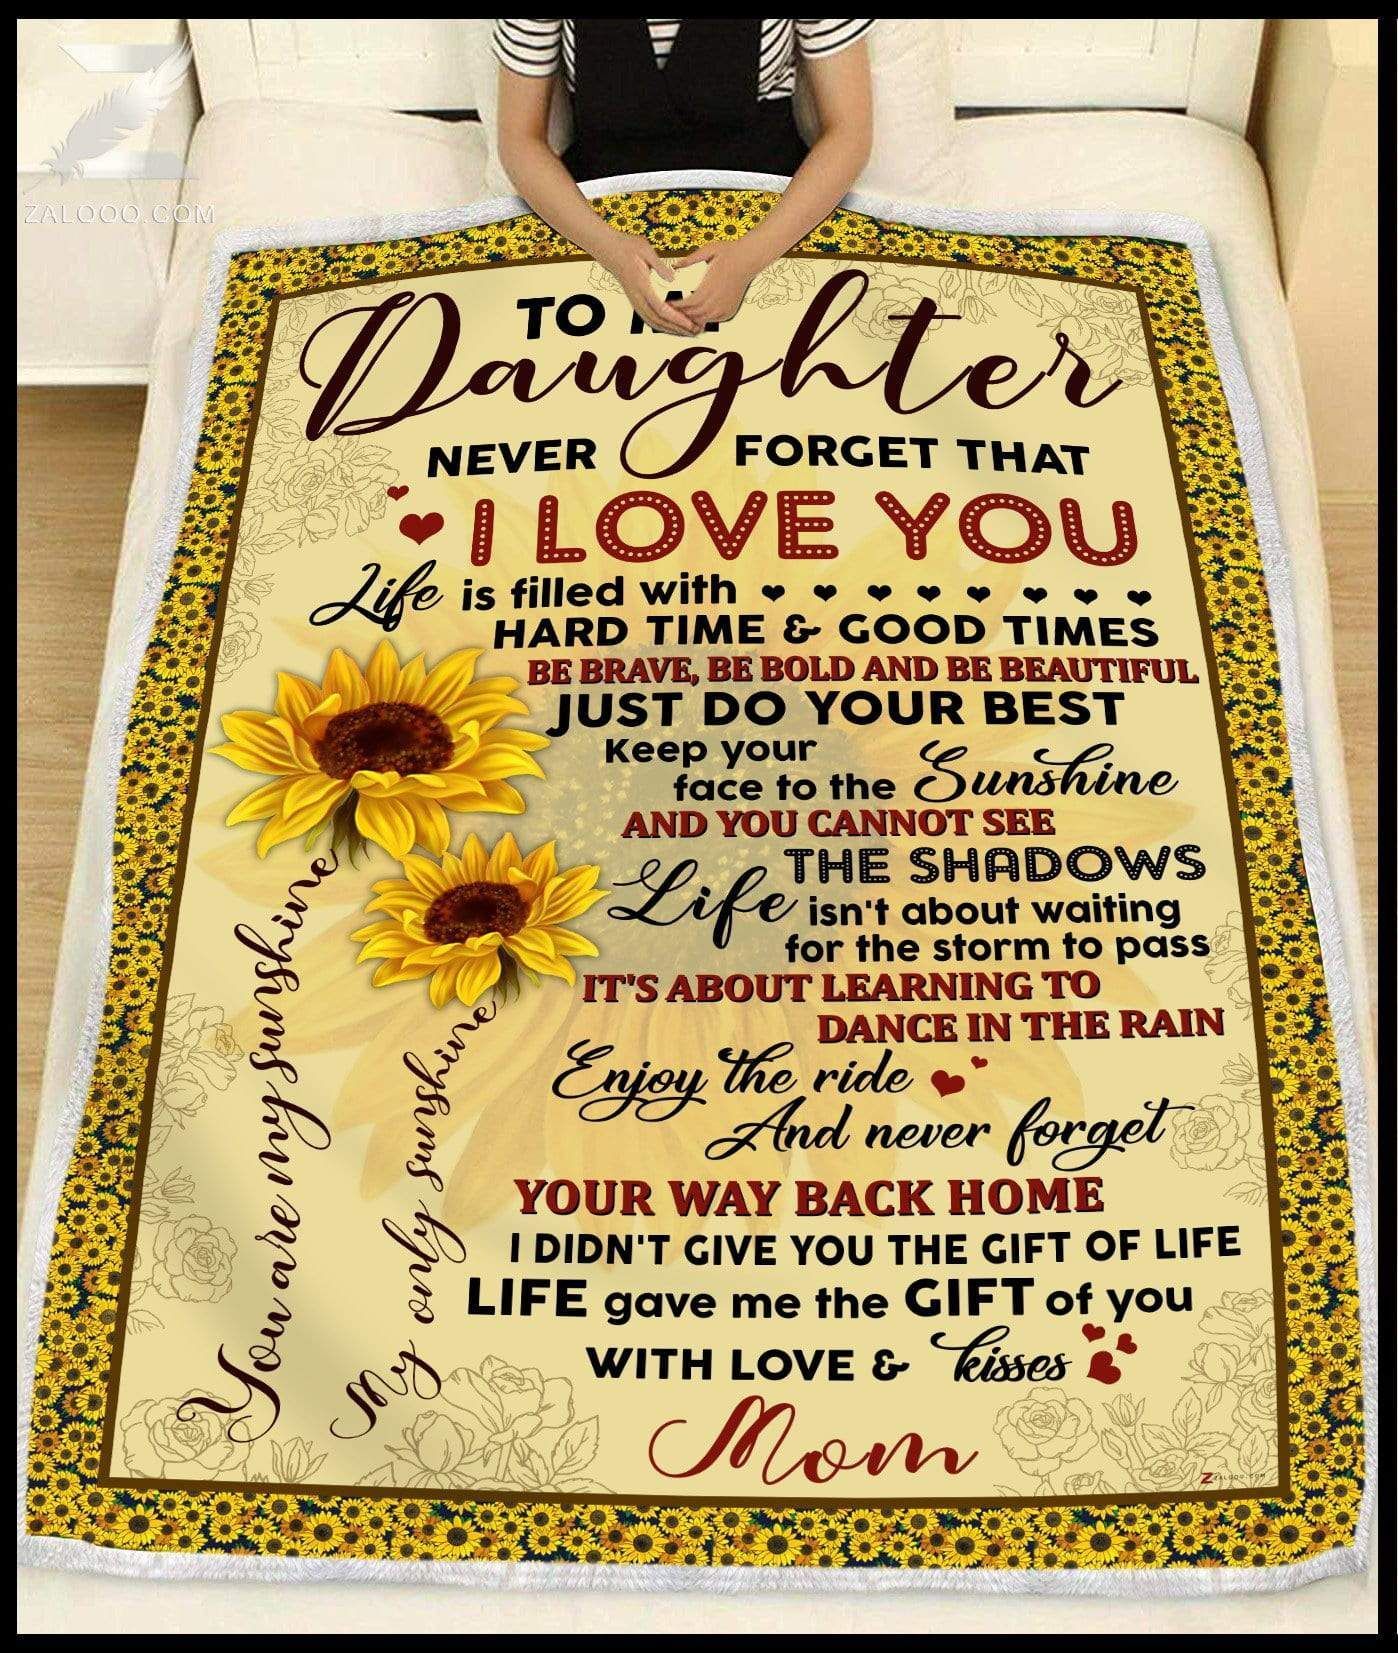 ZALOOO.COM
TO MY
Daughter
NEVER FORGET THAT
I LOVE YOU
Life is filled with
HARD TIME & GOOD TIMES
BE BRAVE, BE BOLD AND BE BEAUTIFUL
JUST DO YOUR BEST
Keep your
face to the Sunshine
AND YOU CANNOT SEE
THE SHADOWS
Life isn't about waiting
for the storm to pass
IT'S ABOUT LEARNING TO
DANCE IN THE RAIN
Enjoy the ride
And never forget
YOUR WAY BACK HOME
I DIDN'T GIVE YOU THE GIFT OF LIFE
LIFE gave me the GIFT of you
WITH LOVE & kisses
Mom
You are my sunshine
My only sunshine
ZALOOO.COM